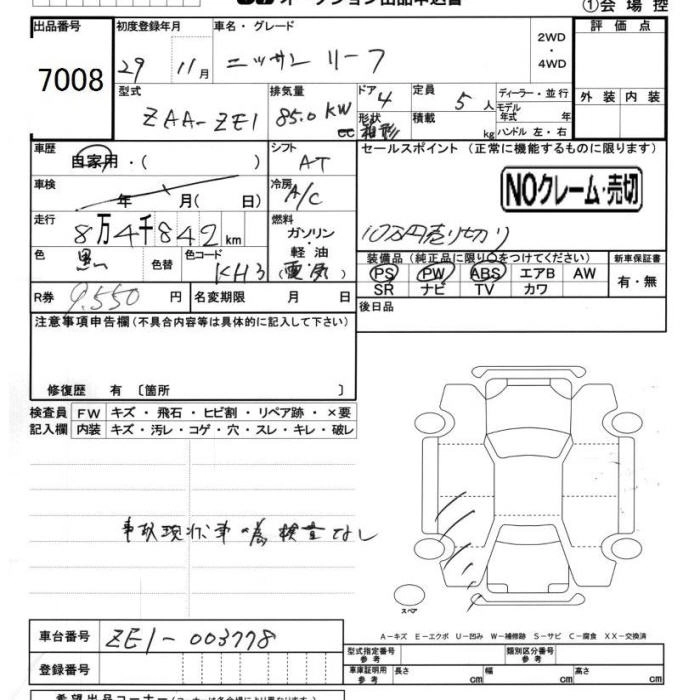 オークション出品申込書
①会場控
出品番号 初度登録年月 車名・グレード 評価点
7008 29 11月 ニッサン リーフ 2WD・4WD
型式 排気量 ドア 定員 ディーラー・並行 外装 内装
ZAA-ZE1 85.0 KW cc 4 5人 モデル年式 年式
形状 箱形 積載 kg ハンドル 左・右
車歴 シフト セールスポイント (正常に機能するものに限ります)
自家用・( ) AT
車検 年 月( 日) 冷房 A/C NOクレーム・売切
走行 8万4千842km 燃料 10万円売り切り
ガソリン・軽油
色 黒 色替 色コード KH3 (電気) 装備品 (純正品に限り○をつけてください) 新車保証書
PS PW ABS エアB AW 有・無
SR ナビ TV カワ
R券 9,550円 名変期限 月 日 後日品
注意事項申告欄(不具合内容等は具体的に記入して下さい)
修復歴 有 〔箇所 〕
検査員 FW キズ・飛石・ヒビ割・リペア跡・×要
記入欄 内装 キズ・汚レ・コゲ・穴・スレ・キレ・破レ
事故現状車の為 検査なし
スペア
A−キズ E−エクボ U−凹み W−補修跡 S−サビ C−腐食 XX−交換済
車台番号 ZE1-003778
型式指定番号 参考 類別区分番号 参考
登録番号 車庫証明用 参考 長さ cm 幅 cm 高さ cm
希望出品コーナー